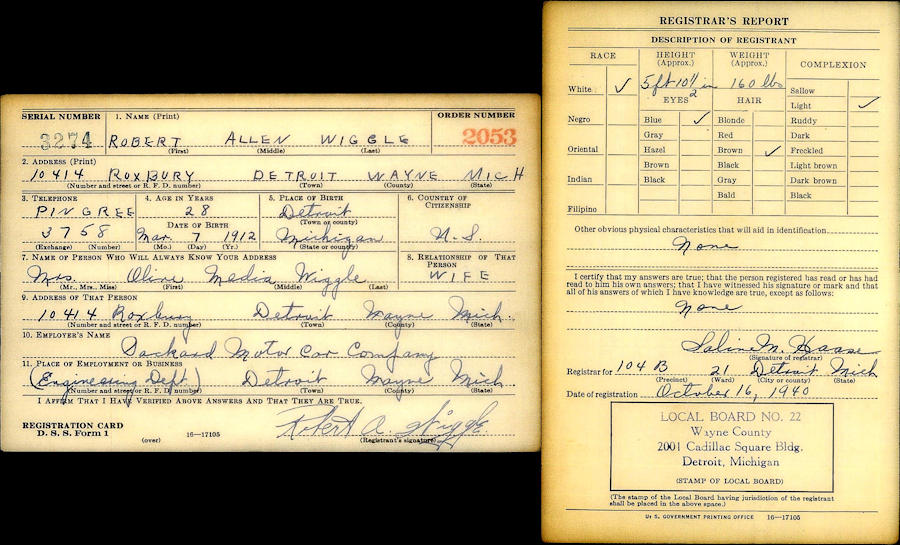 SERIAL NUMBER 1. NAME (Print) ORDER NUMBER
3274 ROBERT ALLEN WIGGLE 2053
(First) (Middle) (Last)
2. ADDRESS (Print)
10414 ROXBURY DETROIT WAYNE MICH
(Number and street or R. F. D. number) (Town) (County) (State)
3. TELEPHONE 4. AGE IN YEARS 5. PLACE OF BIRTH 6. COUNTRY OF CITIZENSHIP
PINGREE 28 Detroit
(Town or county)
DATE OF BIRTH
3758 Mar. 7 1912 Michigan U.S.
(Exchange) (Number) (Mo.) (Day) (Yr.) (State or country)
7. NAME OF PERSON WHO WILL ALWAYS KNOW YOUR ADDRESS 8. RELATIONSHIP OF THAT PERSON
Mrs. Olive Media Wiggle WIFE
(Mr., Mrs., Miss) (First) (Middle) (Last)
9. ADDRESS OF THAT PERSON
10414 Roxbury Detroit Wayne Mich.
(Number and street or R. F. D. number) (Town) (County) (State)
10. EMPLOYER'S NAME
Packard Motor Car Company
11. PLACE OF EMPLOYMENT OR BUSINESS
(Engineering Dept.) Detroit Wayne Mich
(Number and street or R. F. D. number) (Town) (County) (State)
I AFFIRM THAT I HAVE VERIFIED ABOVE ANSWERS AND THAT THEY ARE TRUE.
REGISTRATION CARD
D. S. S. Form 1 Robert A. Wiggle
(over) 16—17105 (Registrant's signature)
REGISTRAR'S REPORT
DESCRIPTION OF REGISTRANT
RACE HEIGHT (Approx.) WEIGHT (Approx.) COMPLEXION
White ✓ 5 ft 10 1/2 in 160 lbs Sallow
EYES HAIR Light ✓
Negro Blue ✓ Blonde Ruddy
Gray Red Dark
Oriental Hazel Brown ✓ Freckled
Brown Black Light brown
Indian Black Gray Dark brown
Bald Black
Filipino
Other obvious physical characteristics that will aid in identification
None
I certify that my answers are true; that the person registered has read or has had
read to him his own answers; that I have witnessed his signature or mark and that
all of his answers of which I have knowledge are true, except as follows:
None
M. Haase
(Signature of registrar)
Registrar for 104 B 21 Detroit Mich
(Precinct) (Ward) (City or county) (State)
Date of registration October 16, 1940
LOCAL BOARD NO. 22
Wayne County
2001 Cadillac Square Bldg.
Detroit, Michigan
(STAMP OF LOCAL BOARD)
(The stamp of the Local Board having jurisdiction of the registrant
shall be placed in the above space.)
U. S. GOVERNMENT PRINTING OFFICE 16—17105